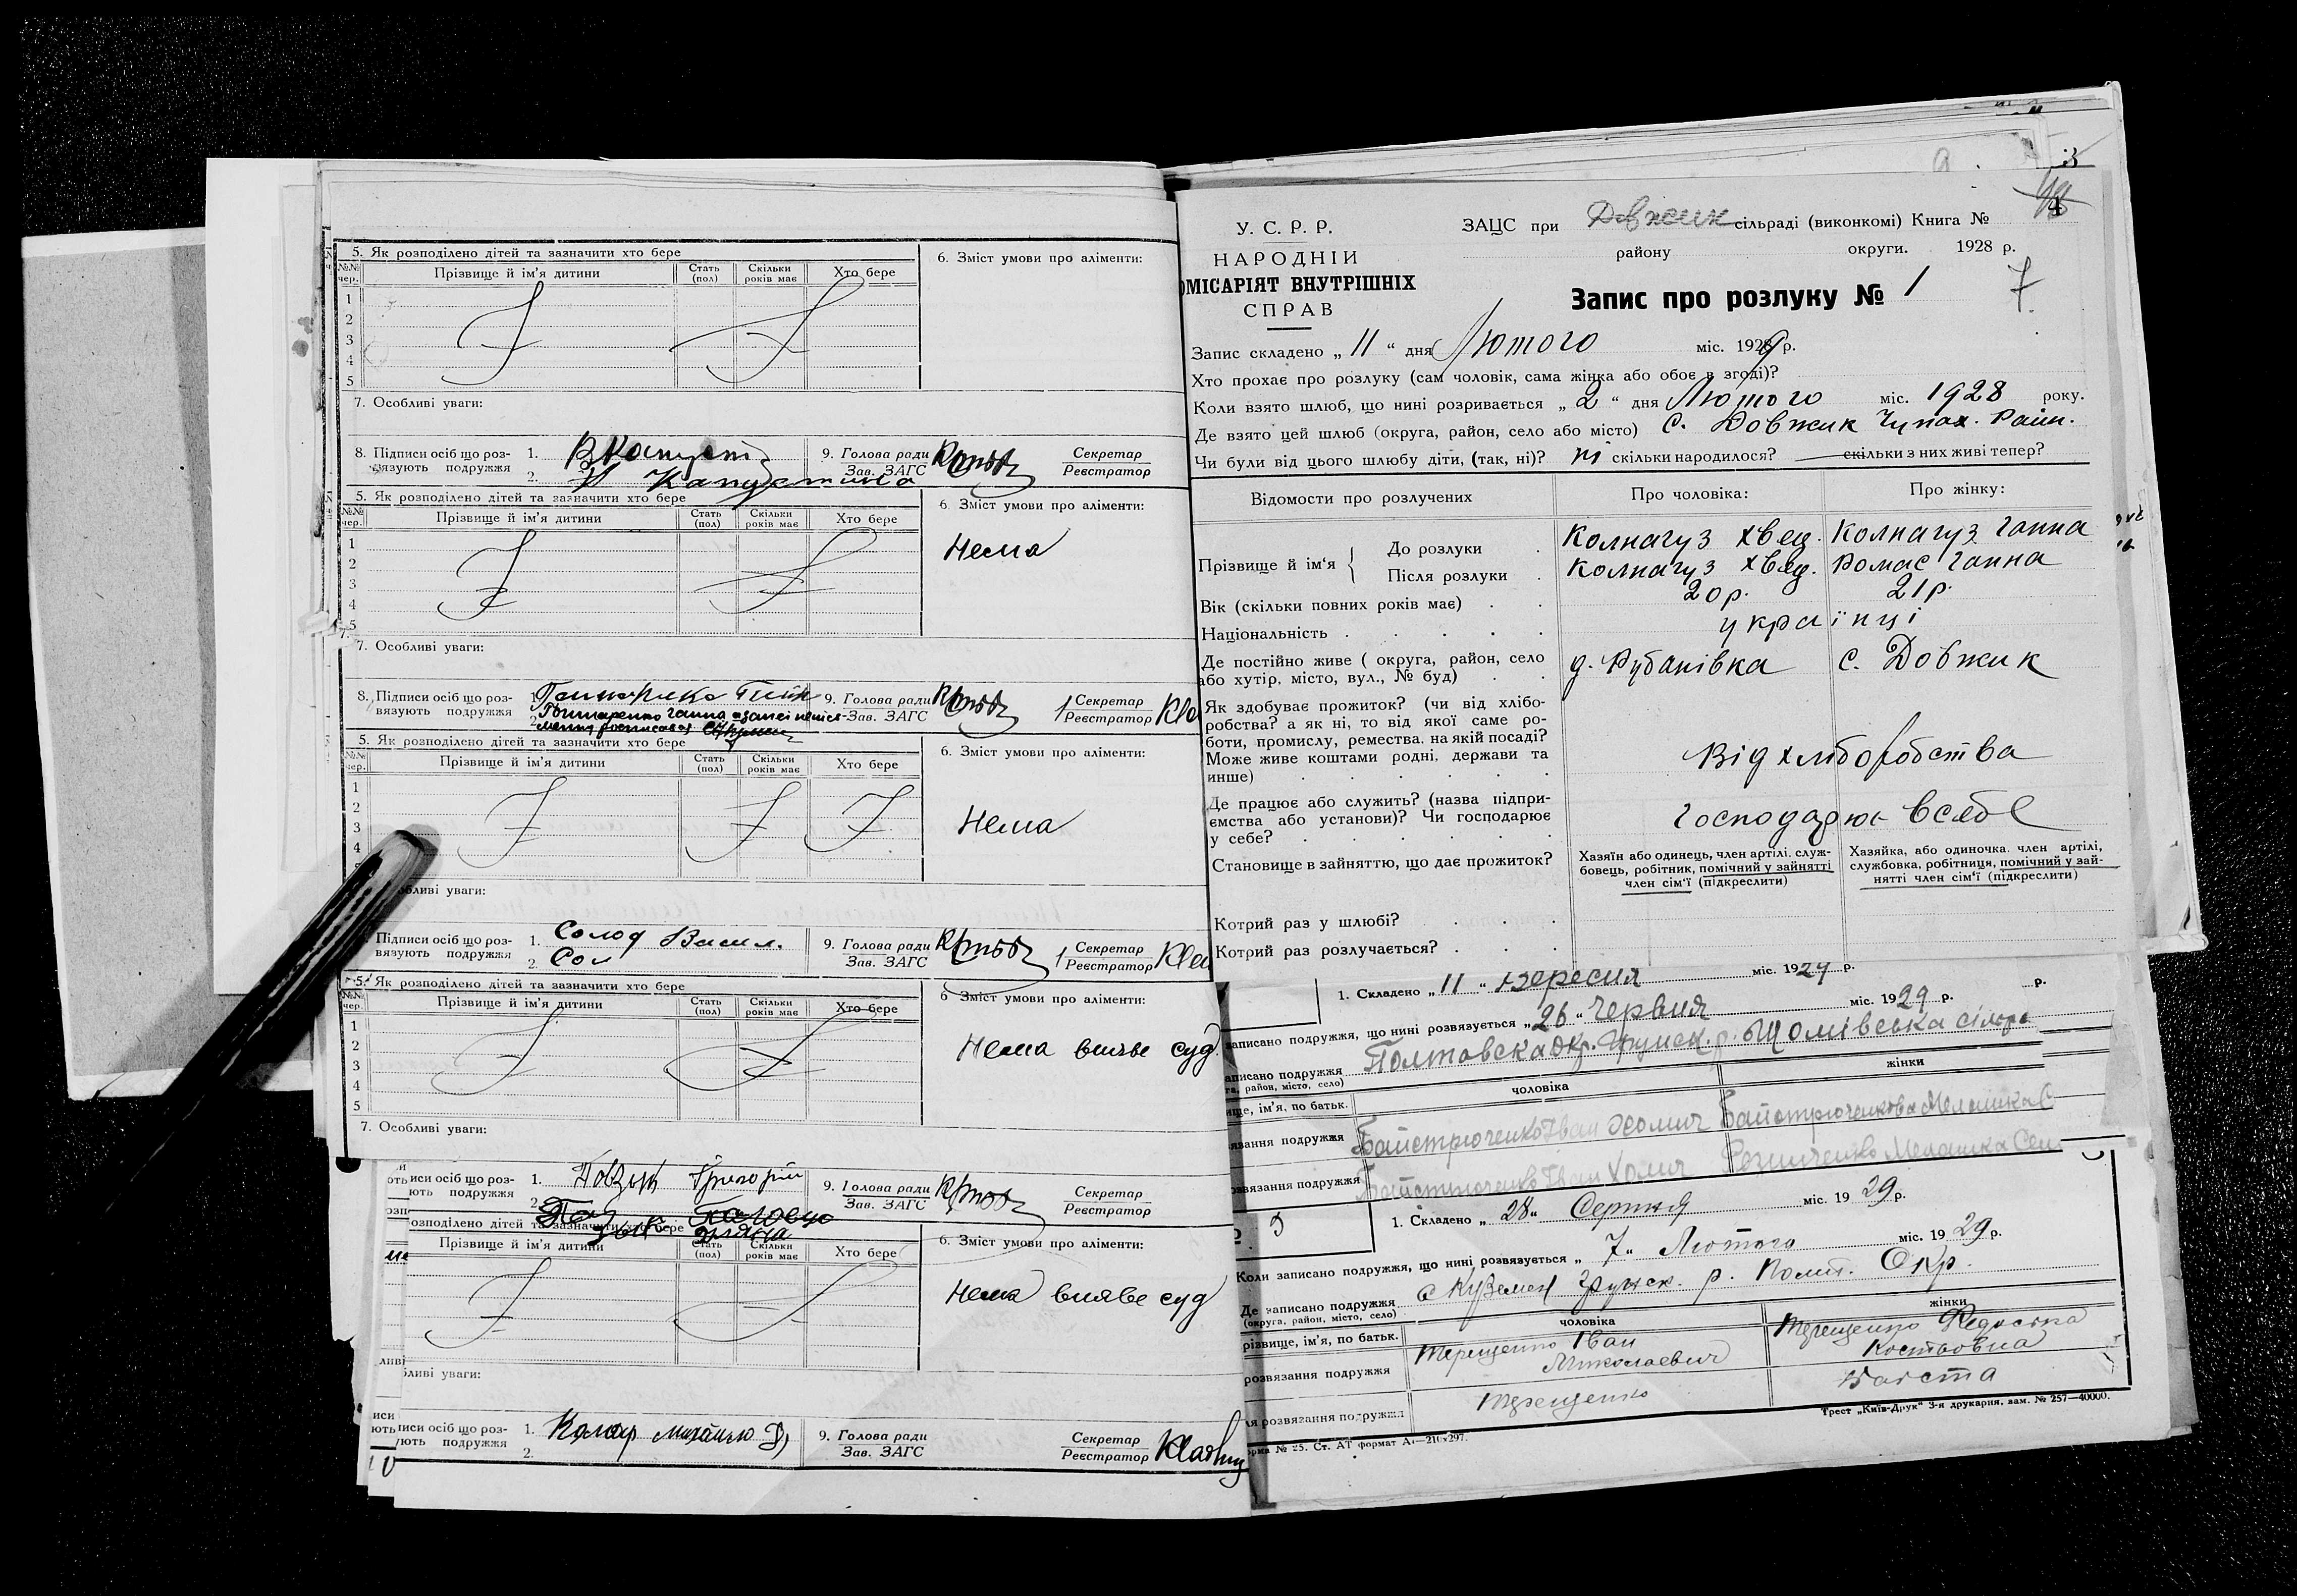 5. Як розподілено дітей та зазначити хто бере
6. Зміст умови про аліменти:
№№ чер. Прізвище й ім'я дитини Стать (пол) Скільки років має Хто бере
1
2
3
4
5
7. Особливі уваги:
8. Підписи осіб що роз-
вязують подружжя
1.
2. Капустіна
9. Голова ради
Зав. ЗАГС
Секретар
Реєстратор
5. Як розподілено дітей та зазначити хто бере
6. Зміст умови про аліменти:
№№ чер. Прізвище й ім'я дитини Стать (пол) Скільки років має Хто бере
Нема
1
2
3
4
5
7. Особливі уваги:
8. Підписи осіб що роз-
вязують подружжя
1.
2. Гончаренко Ганна
9. Голова ради
Зав. ЗАГС
Секретар
Реєстратор
5. Як розподілено дітей та зазначити хто бере
6. Зміст умови про аліменти:
№№ чер. Прізвище й ім'я дитини Стать (пол) Скільки років має Хто бере
1
2
3
4
Нема
бливі уваги:
Підписи осіб що роз-
вязують подружжя
1. Солод Васил.
2. Сол
9. Голова ради
Зав. ЗАГС
Секретар
Реєстратор
5. Як розподілено дітей та зазначити хто бере
6 Зміст умови про аліменти:
№№ чер. Прізвище й ім'я дитини Стать (пол) Скільки років має Хто бере
1
2
3
4
5
Нема виявe суд.
7. Особливі уваги:
иси осіб що роз-
ють подружжя
1. Григорій
2.
9. Голова ради
Зав. ЗАГС
Секретар
Реєстратор
озподілено дітей та зазначити хто бере
6. Зміст умови про аліменти:
Прізвище й ім'я дитини Стать (пол) Скільки років має Хто бере
Нема виявe суд
бливі уваги:
иси осіб що роз-
ють подружжя
1. Михайло
2.
9. Голова ради
Зав. ЗАГС
Секретар
Реєстратор
У. С. Р. Р.
НАРОДНІЙ
ОМІСАРІЯТ ВНУТРІШНІХ
СПРАВ
ЗАЦС при Довжик сільраді (виконкомі) Книга №
району округи. 1928 р.
7
Запис про розлуку № 1
Запис складено „ 11 “ дня Лютого міс. 1929 р.
Хто прохає про розлуку (сам чоловік, сама жінка або обоє в згоді)?
Коли взято шлюб, що нині розривається „ 2 “ дня Лютого міс. 1928 року.
Де взято цей шлюб (округа, район, село або місто) с. Довжик Чупах. Райн.
Чи були від цього шлюбу діти, (так, ні)? ні скільки народилося? скільки з них живі тепер?
Відомости про розлучених Про чоловіка: Про жінку:
Прізвище й ім'я
До розлуки Колнагуз Хвед. Колнагуз Ганна
Після розлуки Колнагуз Хвед. Ромас Ганна
Вік (скільки повних років має) 20 р. 21 р.
Національність українці
Де постійно живе ( округа, район, село
або хутір, місто, вул., № буд)
д. Рубанівка с. Довжик
Як здобуває прожиток? (чи від хлібо-
робства? а як ні, то від якої саме ро-
боти, промислу, ремества. на якій посаді?
Може живе коштами родні, держави та
инше)
Від хліборобства
Де працює або служить? (назва підпри-
ємства або установи)? Чи господарює
у себе?
господарює в себе
Становище в зайняттю, що дає прожиток?
Хазяїн або одинець, член артілі, служ-
бовець, робітник, помічний у зайнятті
член сім'ї (підкреслити)
Хазяйка, або одиночка, член артілі,
службовка, робітниця, помічний у зай-
нятті член сім'ї (підкреслити)
Котрий раз у шлюбі?
Котрий раз розлучається?
1. Складено „ 11 “ Вересня міс. 1929 р.
записано подружжя, що нині розвязується „ 26 “ Червня міс. 1929 р.
аписано подружжя
га, район, місто, село)
Полтавска Окр. Грунск. р.
чоловіка жінки
ище, ім'я, по батьк.
язання подружжя Байстрюченко Іван Хомич Байстрюченкова Меланка С
озвязання подружжя Байстрюченко Іван Хомич Резниченко Меланка Сем
9
1. Складено „ 28 “ Серпня міс. 1929 р.
Коли записано подружжя, що нині розвязується „ 7 “ Лютого міс. 1929 р.
Де записано подружжя
(округа, район, місто, село)
с Куземен Грунск. р. Полт. Окр.
чоловіка жінки
різвище, ім'я, по батьк.
розвязання подружжя
Терещенко Іван
Миколаевич
Терещенко Федоська
Костьовна
ля розвязання подружжя Терещенко
Трест „Київ-Друк“ 3-я друкарня, зам. № 257—40000.
орма № 25. Ст. АТ формат А4—210×297.